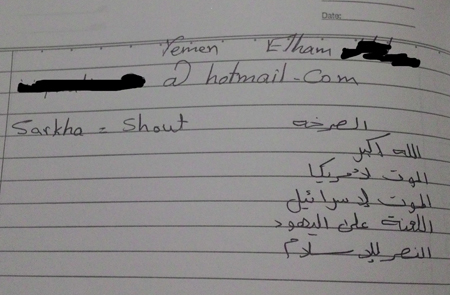 Date:
Yemen Elham
@ hotmail.com
Sarkha = Shout الصرخة
الله اكبر
الموت لأمريكا
الموت لإسرائيل
اللعنة على اليهود
النصر للإسلام